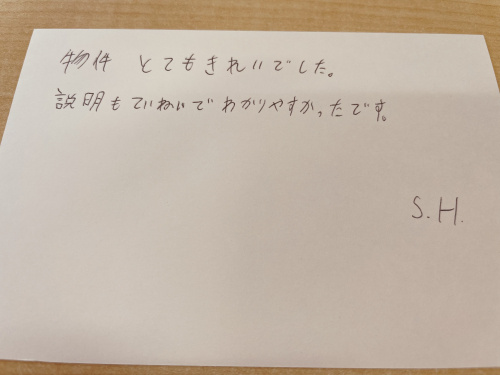 物件 とてもきれいでした。
説明もていねいでわかりやすかったです。
S.H.